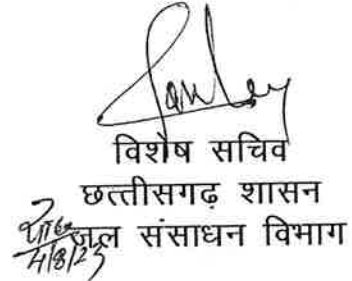 विशेष सचिव
छत्तीसगढ़ शासन
जल संसाधन विभाग
4/8/25